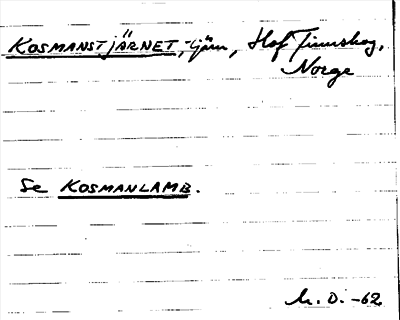 KOSMANSTJÄRNET, tjärn, Hof Finnskog,
Norge
Se KOSMANLAMB.
M. D. -62